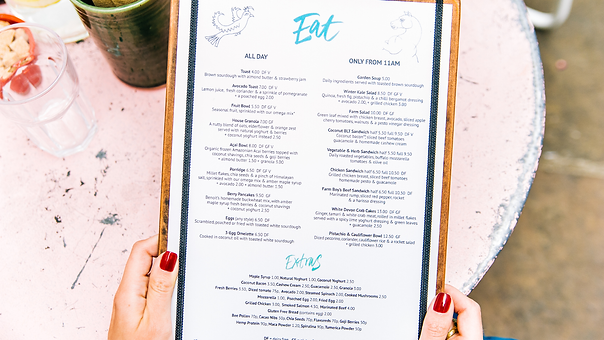 Eat
ALL DAY
Toast 4.00 DF V
Brown sourdough with almond butter & strawberry jam
Avocado Toast 7.00 DF V
Lemon juice, fresh coriander & a sprinkle of pomegranate
+ a poached egg 2.00
Fruit Bowl 5.50 DF GF V
Seasonal fruit, sprinkled with our omega mix*
House Granola 7.00 GF
A nutty blend of oats, elderflower & orange zest
served with natural yoghurt & berries
+ coconut yoghurt instead 2.50
Açai Bowl 9.00 GF V
Organic frozen Amazonian Açai berries topped with
coconut shavings, chia seeds & goji berries
+ almond butter 1.50 + granola 3.00
Porridge 6.50 DF V
Millet flakes, chia seeds & a pinch of Himalayan
salt, sprinkled with our omega mix & amber maple syrup
+ avocado 2.00 + almond butter 1.50
Berry Pancakes 9.50 GF
Benoit's homemade buckwheat mix, with amber
maple syrup fresh berries & coconut shavings
+ coconut yoghurt 2.50
Eggs (any style) 6.50 DF
Scrambled, poached or fried with toasted white sourdough
3-Egg Omelette 6.50 DF
Cooked in coconut oil with toasted white sourdough
ONLY FROM 11AM
Garden Soup 9.00
Daily ingredients served with toasted brown sourdough
Winter Kale Salad 8.50 DF GF V
Quinoa, fresh fig, pistachio & a chilli bergamot dressing
+ avocado 2.00 + grilled chicken 3.00
Farm Salad 10.00 DF
Green leaf mixed with chicken breast, avocado, sliced apple
cherry tomatoes, walnuts & a pesto vinegar dressing
Coconut BLT Sandwich half 5.50 full 9.50 DF
Coconut bacon**, sliced beef tomatoes
guacamole & homemade cashew cream
Vegetable & Herb Sandwich half 5.50 full 9.50
Daily roasted vegetables, buffalo mozzarella
tomatoes & olive oil
Chicken Sandwich half 6.50 full 10.50 DF
Grilled chicken breast, sliced beef tomatoes
homemade pesto & guacamole
Farm Boy's Beef Sandwich half 6.50 full 10.50 DF
Marinated rump, sliced red pepper, rocket
& a harissa dressing
White Devon Crab Cakes 13.00 GF
Ginger, tamari & white crab meat, rolled in millet flakes
served with a spicy lime yoghurt dressing & green leaves
+ guacamole 2.50
Pistachio & Cauliflower Bowl 12.50 GF
Diced pecorino, coriander, cauliflower rice & a rocket salad
+ grilled chicken 3.00
Extras
Maple Syrup 1.00, Natural Yoghurt 1.00, Coconut Yoghurt 2.50
Coconut Bacon 3.50, Cashew Cream 2.50, Guacamole 2.50, Granola 3.00
Fresh Berries 3.50, Diced tomato 75p, Avocado 2.00, Steamed Spinach 2.00, Cooked Mushrooms 2.50
Mozzarella 1.00, Poached Egg 2.00, Fried Egg 2.00
Grilled Chicken 3.00, Smoked Salmon 4.50, Marinated Beef 4.00
Gluten Free Bread (contains egg) 2.00
Bee Pollen 75p, Cacao Nibs 50p, Chia Seeds 70p, Flaxseeds 70p, Goji Berries 50p
Hemp Protein 90p, Maca Powder 1.20, Spirulina 90p, Turmeric Powder 50p